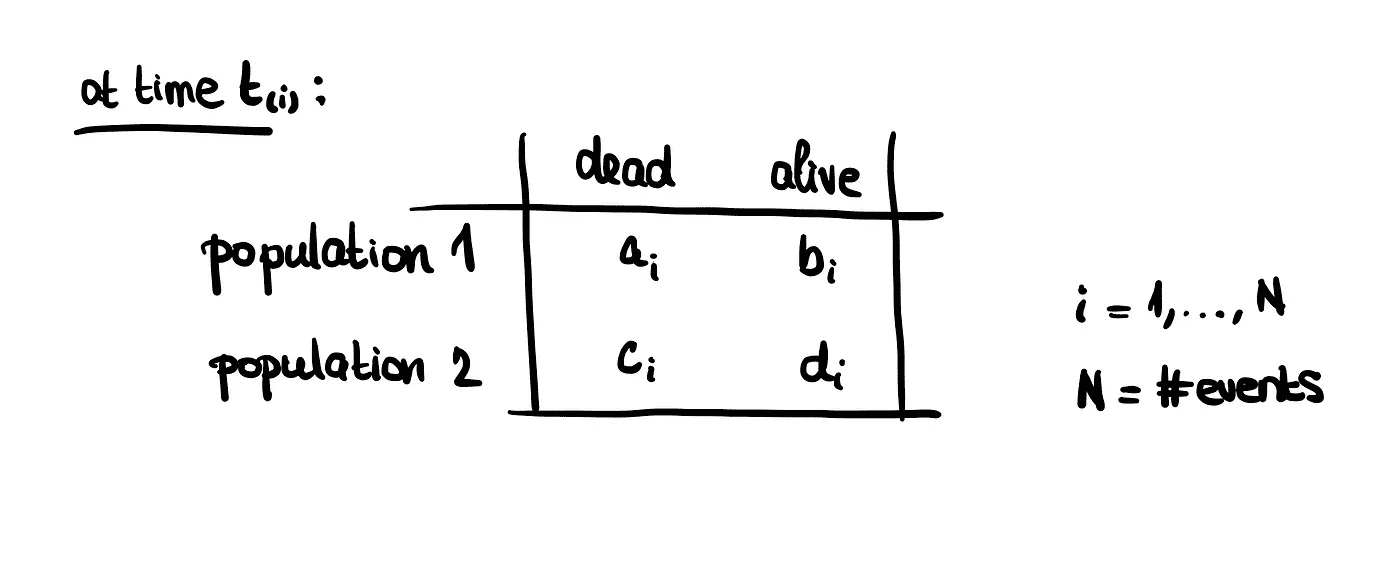 at time t(i):
dead alive
population 1 aᵢ bᵢ
i = 1,..., N
population 2 cᵢ dᵢ
N = #events